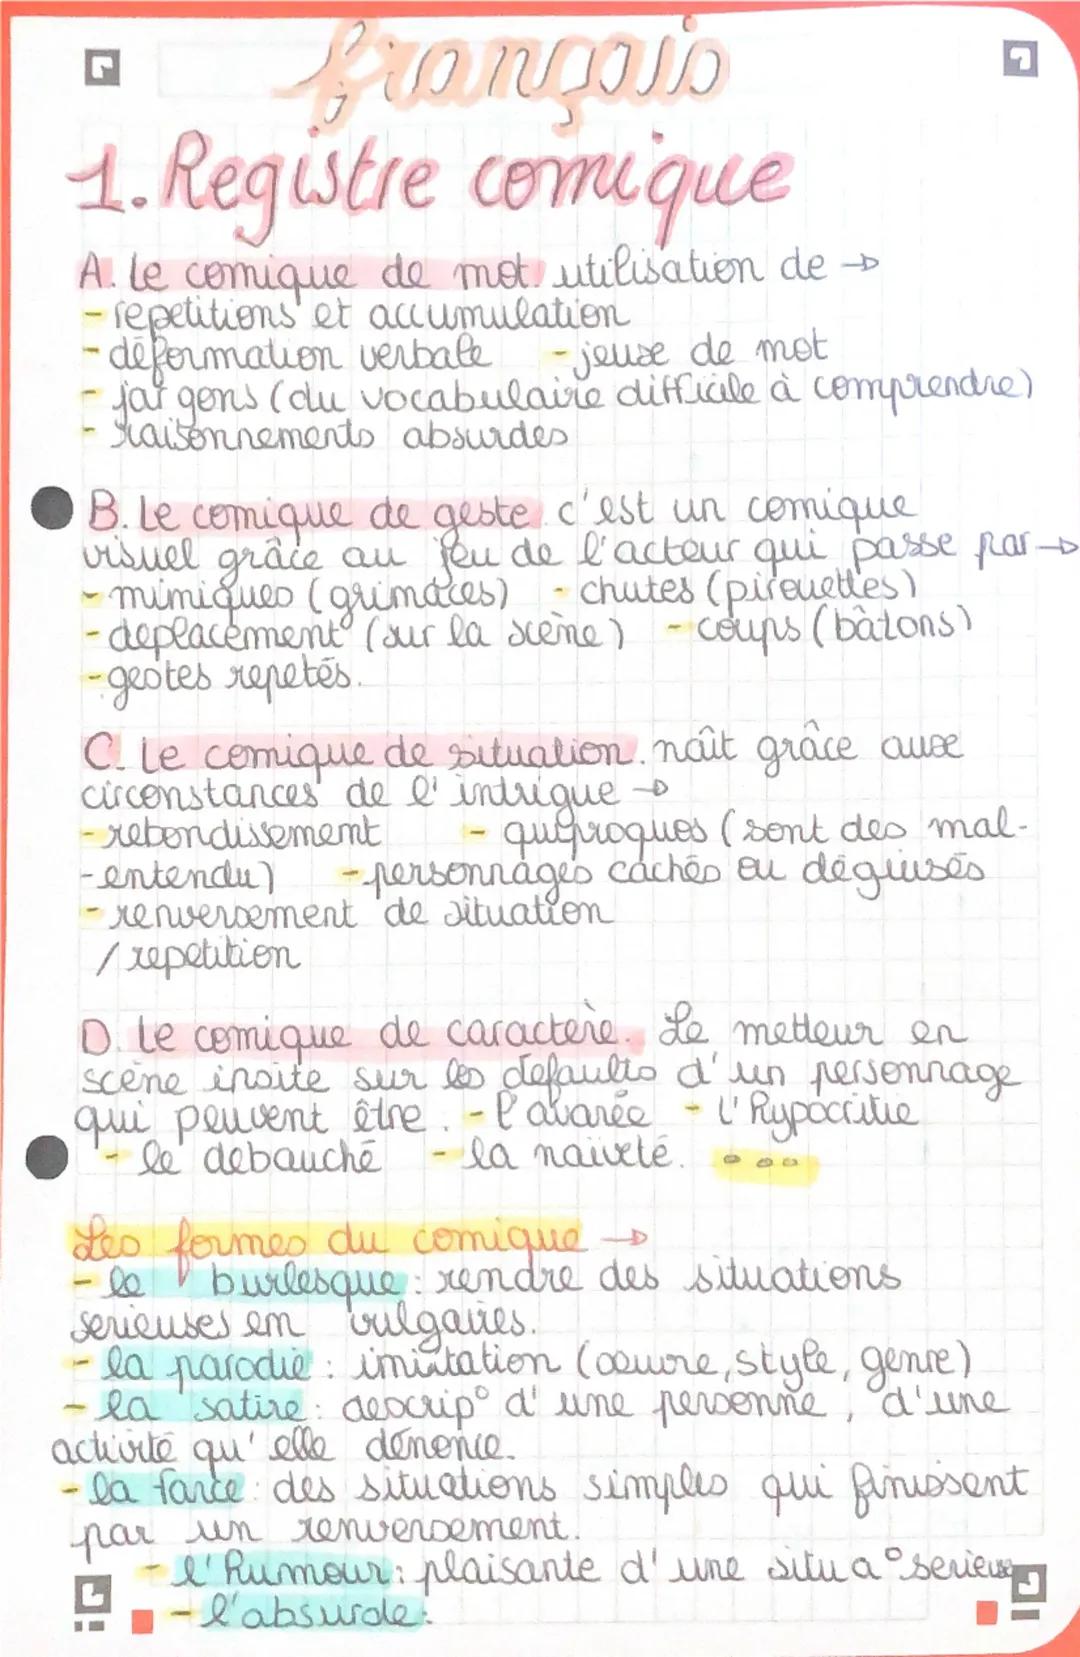 français
1. Registre comique
A. le comique de mot. utilisation de →
- repetitions et accumulation
- déformation verbale - jeux de mot
- jargons (du vocabulaire difficile à comprendre)
- raisonnements absurdes
B. le comique de geste. c'est un comique
visuel grâce au jeu de l'acteur qui passe par →
- mimiques (grimaces) - chutes (pirouettes)
- deplacement (sur la scène) - coups (bâtons)
- gestes repetés.
C. le comique de situation. naît grâce aux
circonstances de l'intrigue →
- rebondissement - quiproquos (sont des mal-
- entendu) - personnages cachés ou déguisés
- renversement de situation
/ repetition
D. le comique de caractère. Le metteur en
scène insite sur les defaults d'un personnage
qui peuvent être. - l'avarée - l'hypocritie
- le debauché - la naïveté. ...
Les formes du comique →
- le burlesque : rendre des situations
serieuses en vulgaires.
- la parodie : imitation (œuvre, style, genre)
- la satire : descrip° d'une personne, d'une
activité qu'elle dénonce.
- la farce : des situations simples qui finissent
par un renversement.
- l'humour : plaisante d'une situa° serieuse
- l'absurde :